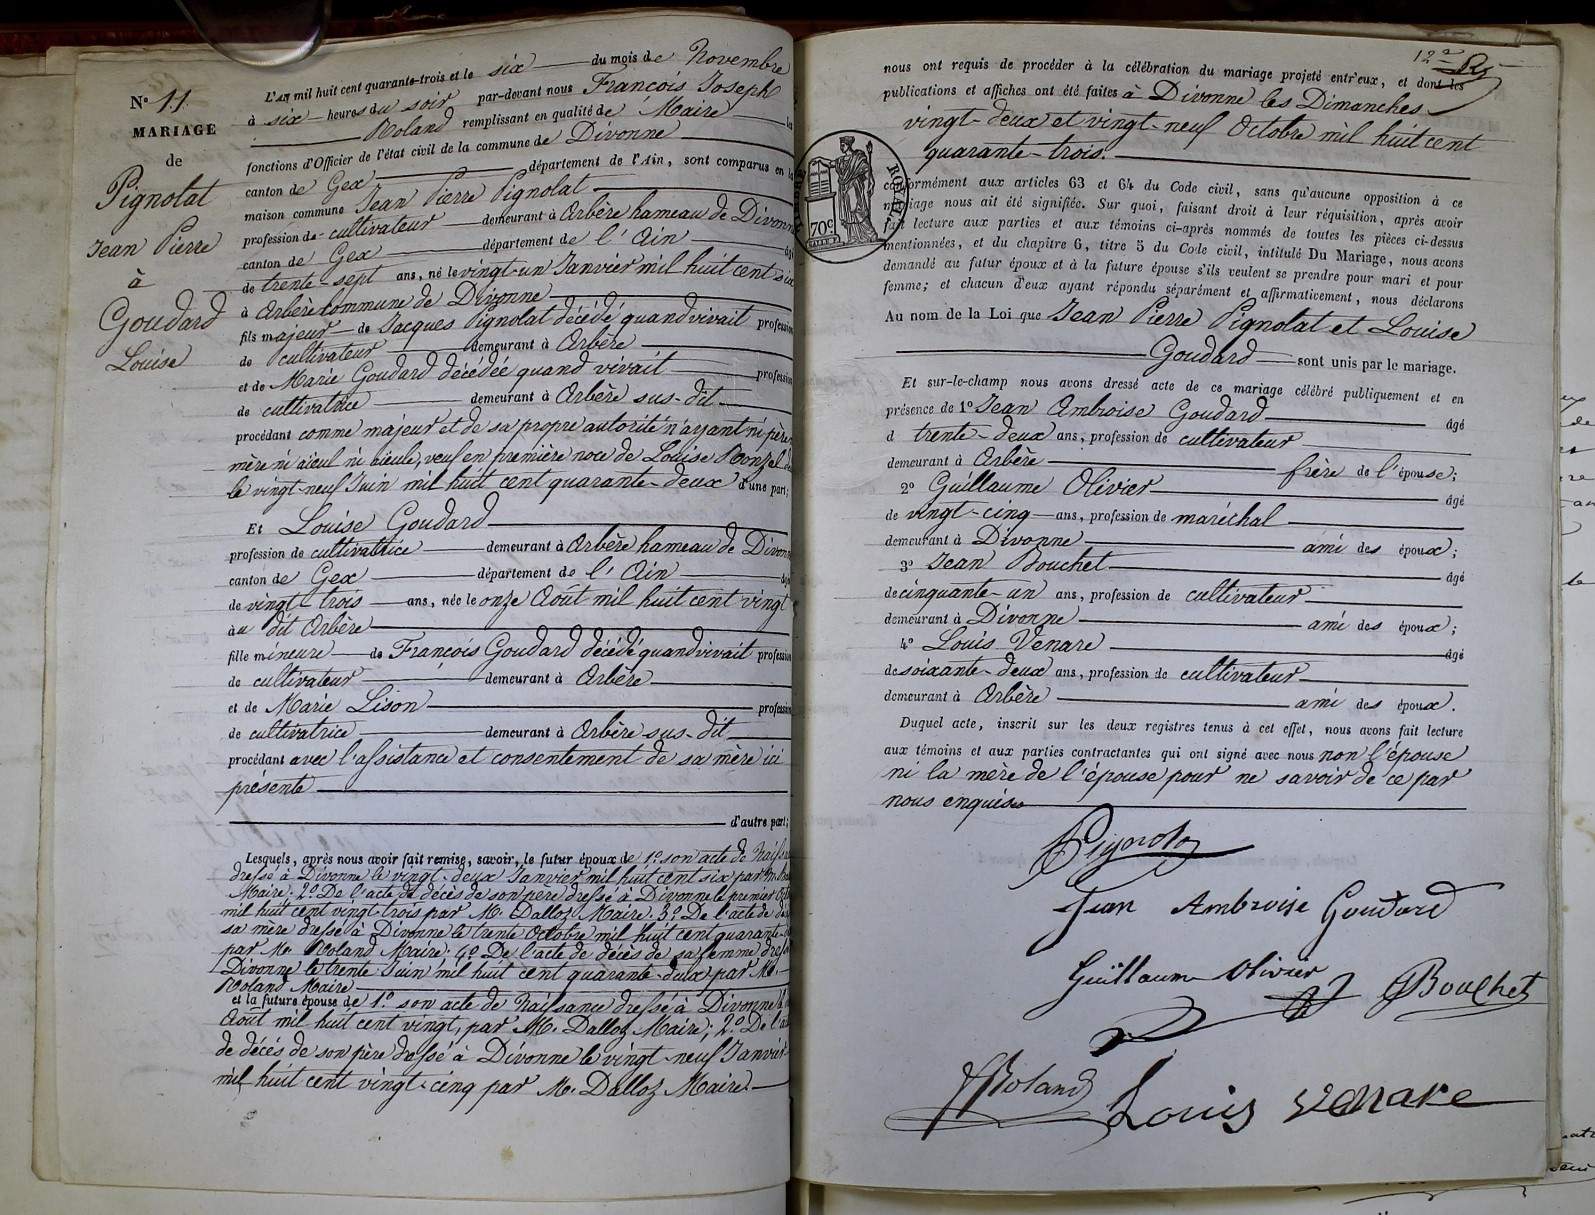 N° 11
MARIAGE
de
Pignolat
Jean Pierre
à
Goudard
Louise
L'AN mil huit cent quarante-trois et le six du mois de Novembre
à six heures du soir par-devant nous François Joseph
Roland remplissant en qualité de Maire les
fonctions d'Officier de l'état civil de la commune de Divonne
canton de Gex département de l'Ain, sont comparus en la
maison commune Jean Pierre Pignolat
profession de cultivateur demeurant à Arbère hameau de Divonne
canton de Gex département de l'Ain âgé
de trente-sept ans, né le vingt-un Janvier mil huit cent six
à Arbère commune de Divonne
fils majeur de Jacques Pignolat décédé quand vivait profession
de cultivateur demeurant à Arbère
et de Marie Goudard décédée quand vivait profession
de cultivatrice demeurant à Arbère sus-dit
procédant comme majeur et de sa propre autorité n'ayant ni père
mère ni aïeul ni aïeule, veuf en première noce de Louise Ronzel
le vingt-neuf Juin mil huit cent quarante-deux d'une part;
Et Louise Goudard
profession de cultivatrice demeurant à Arbère hameau de Divonne
canton de Gex département de l'Ain âgé
de vingt-trois ans, née le onze Aout mil huit cent vingt
au dit Arbère
fille mineure de François Goudard décédé quand vivait profession
de cultivateur demeurant à Arbère
et de Marie Lison profession
de cultivatrice demeurant à Arbère sus-dit
procédant avec l'assistance et consentement de sa mère ici
présente
d'autre part;
Lesquels, après nous avoir fait remise, savoir, le futur époux de 1.° son acte de Naissance
dressé à Divonne le vingt-deux Janvier mil huit cent six par M.
Maire; 2.° De l'acte de décès de son père dressé à Divonne le premier
mil huit cent vingt-trois par M. Dalloz Maire; 3.° De l'acte de
sa mère dressé à Divonne le trente Octobre mil huit cent quarante
par M. Roland Maire; 4.° De l'acte de décès de sa femme dressé
Divonne le trente Juin mil huit cent quarante-deux par M.
Roland Maire
et la future épouse de 1.° son acte de Naissance dressé à Divonne
Août mil huit cent vingt, par M. Dalloz Maire; 2.° De l'acte
de décès de son père dressé à Divonne le vingt-neuf Janvier
mil huit cent vingt-cinq par M. Dalloz Maire.
12
nous ont requis de procéder à la célébration du mariage projeté entr'eux, et dont les
publications et affiches ont été faites à Divonne les Dimanches
vingt-deux et vingt-neuf Octobre mil huit cent
quarante-trois.
TIMBRE ROYAL
70c
conformément aux articles 63 et 64 du Code civil, sans qu'aucune opposition à ce
mariage nous ait été signifiée. Sur quoi, faisant droit à leur réquisition, après avoir
fait lecture aux parties et aux témoins ci-après nommés de toutes les pièces ci-dessus
mentionnées, et du chapitre 6, titre 5 du Code civil, intitulé Du Mariage, nous avons
demandé au futur époux et à la future épouse s'ils veulent se prendre pour mari et pour
femme; et chacun d'eux ayant répondu séparément et affirmativement, nous déclarons
Au nom de la Loi que Jean Pierre Pignolat et Louise
Goudard sont unis par le mariage.
Et sur-le-champ nous avons dressé acte de ce mariage célébré publiquement et en
présence de 1° Jean Ambroise Goudard âgé
d trente-deux ans, profession de cultivateur
demeurant à Arbère frère de l'épouse;
2° Guillaume Olivier âgé
de vingt-cinq ans, profession de maréchal
demeurant à Divonne ami des époux;
3° Jean Bouchet âgé
de cinquante-un ans, profession de cultivateur
demeurant à Divonne ami des époux;
4° Louis Venare âgé
de soixante-deux ans, profession de cultivateur
demeurant à Arbère ami des époux.
Duquel acte, inscrit sur les deux registres tenus à cet effet, nous avons fait lecture
aux témoins et aux parties contractantes qui ont signé avec nous non l'épouse
ni la mère de l'épouse pour ne savoir de ce par
nous enquises
Pignolat
Jean Ambroise Goudard
Guillaume Olivier
Bouchet
Roland
Louis Venare